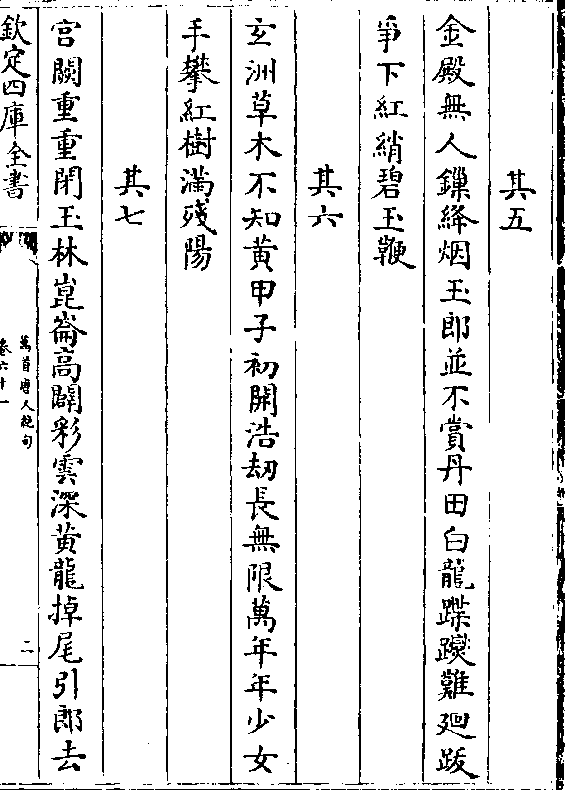 其五
金殿無人鏁絳烟玉郎並不賞丹田白龍蹀躞難廻跋
爭下紅綃碧玉鞭
其六
玄洲草木不知黄甲子初開浩刼長無限萬年年少女
手攀紅樹滿殘陽
其七
宫闕重重閉玉林崑崙高闢彩雲深黄龍掉尾引郎去
欽定四庫全書
萬首唐人絶句
卷六十一
二